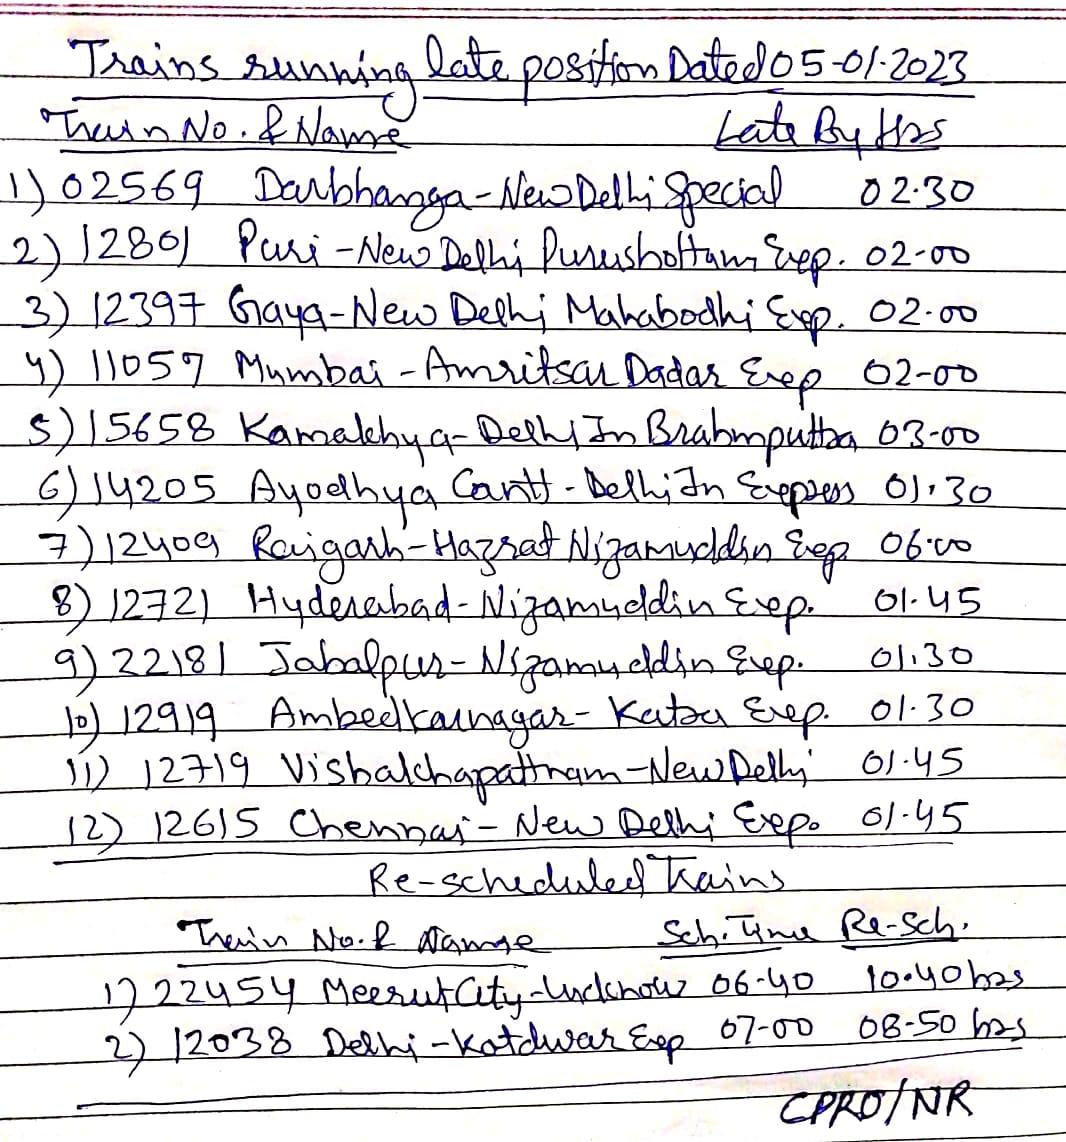 Trains running late position Dated 05-01-2023
Train No. & Name Late By Hrs
1) 02569 Darbhanga-New Delhi Special 02.30
2) 12801 Puri-New Delhi Purushottam Exp. 02-00
3) 12397 Gaya-New Delhi Mahabodhi Exp. 02.00
4) 11057 Mumbai-Amritsar Dadar Exep 02-00
5) 15658 Kamakhya-Delhi Jn Brahmputtra 03-00
6) 14205 Ayodhya Cantt-Delhi Jn Express 01.30
7) 12409 Raigarh-Hazrat Nizamuddin Exp. 06.00
8) 12721 Hyderabad-Nizamuddin Exep. 01.45
9) 22181 Jabalpur-Nizamuddin Exep. 01.30
10) 12919 Ambedkarnagar-Katra Exep. 01.30
11) 12719 Vishakhapattnam-New Delhi 01.45
12) 12615 Chennai-New Delhi Exep. 01.45
Re-scheduled Trains
Train No. & Name Sch. Time Re-Sch.
1) 22454 Meerut City-Lucknow 06-40 10.40 hrs
2) 12038 Delhi-Kotdwar Exp 07-00 08-50 hrs
CPRO/NR